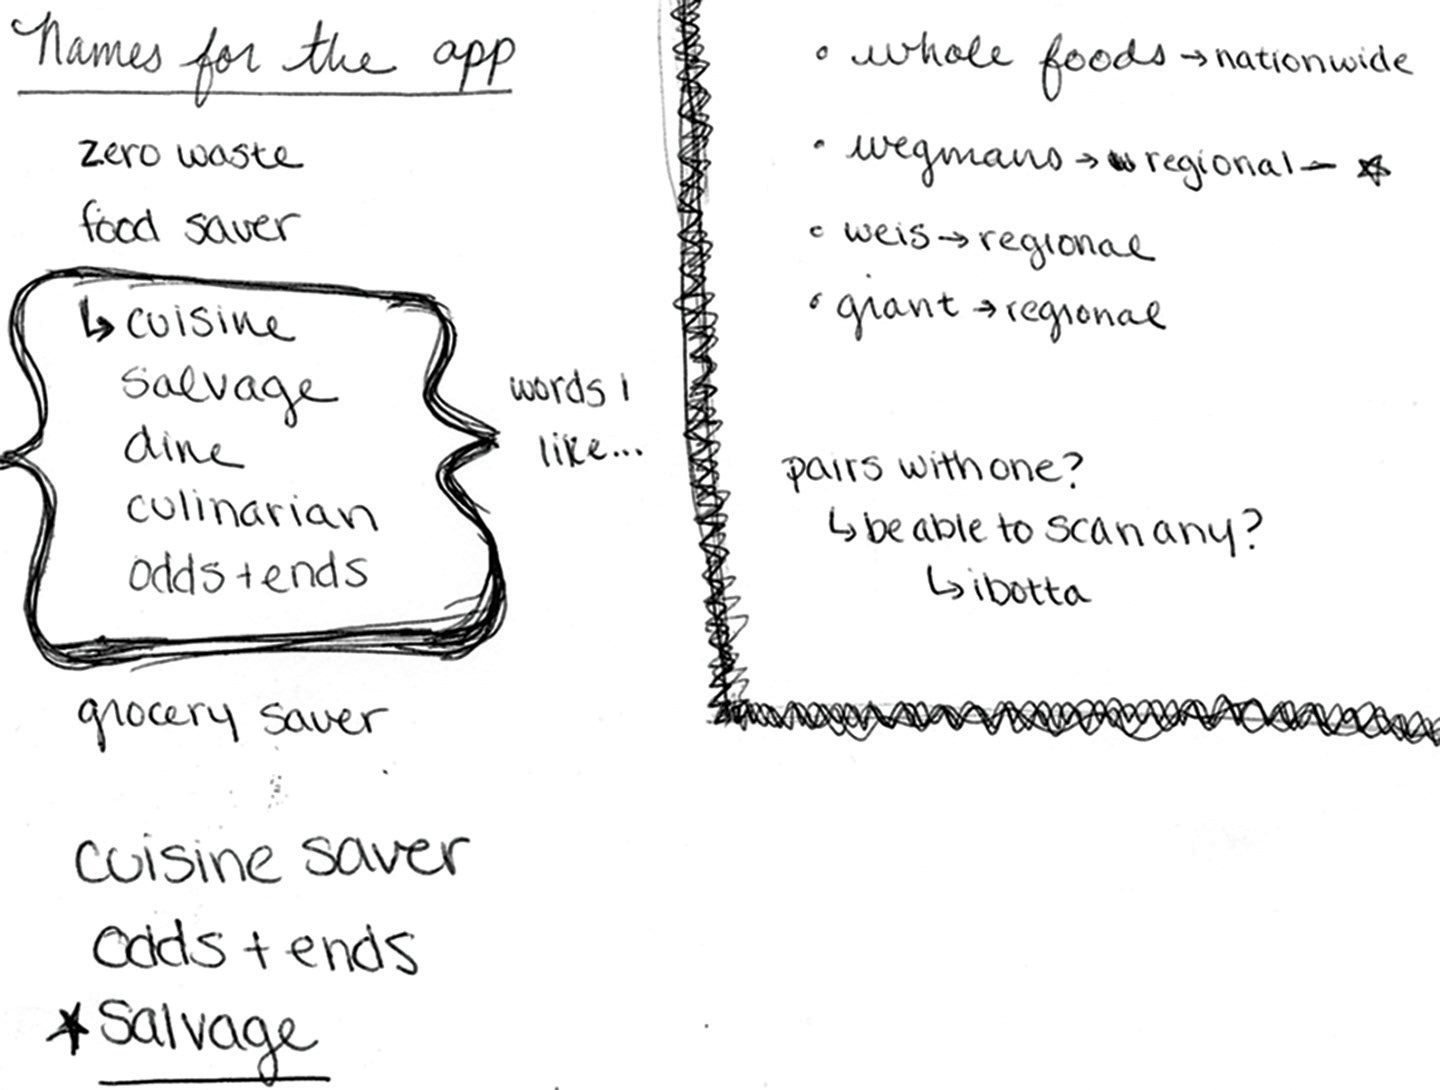 Names for the app
zero waste
food saver
↳ cuisine
salvage
dine
culinarian
odds + ends
words i
like...
grocery saver
cuisine saver
odds + ends
★ Salvage
• whole foods → nationwide
• wegmans → regional – ☆
• weis → regional
• giant → regional
pairs with one?
↳ be able to scan any?
↳ ibotta